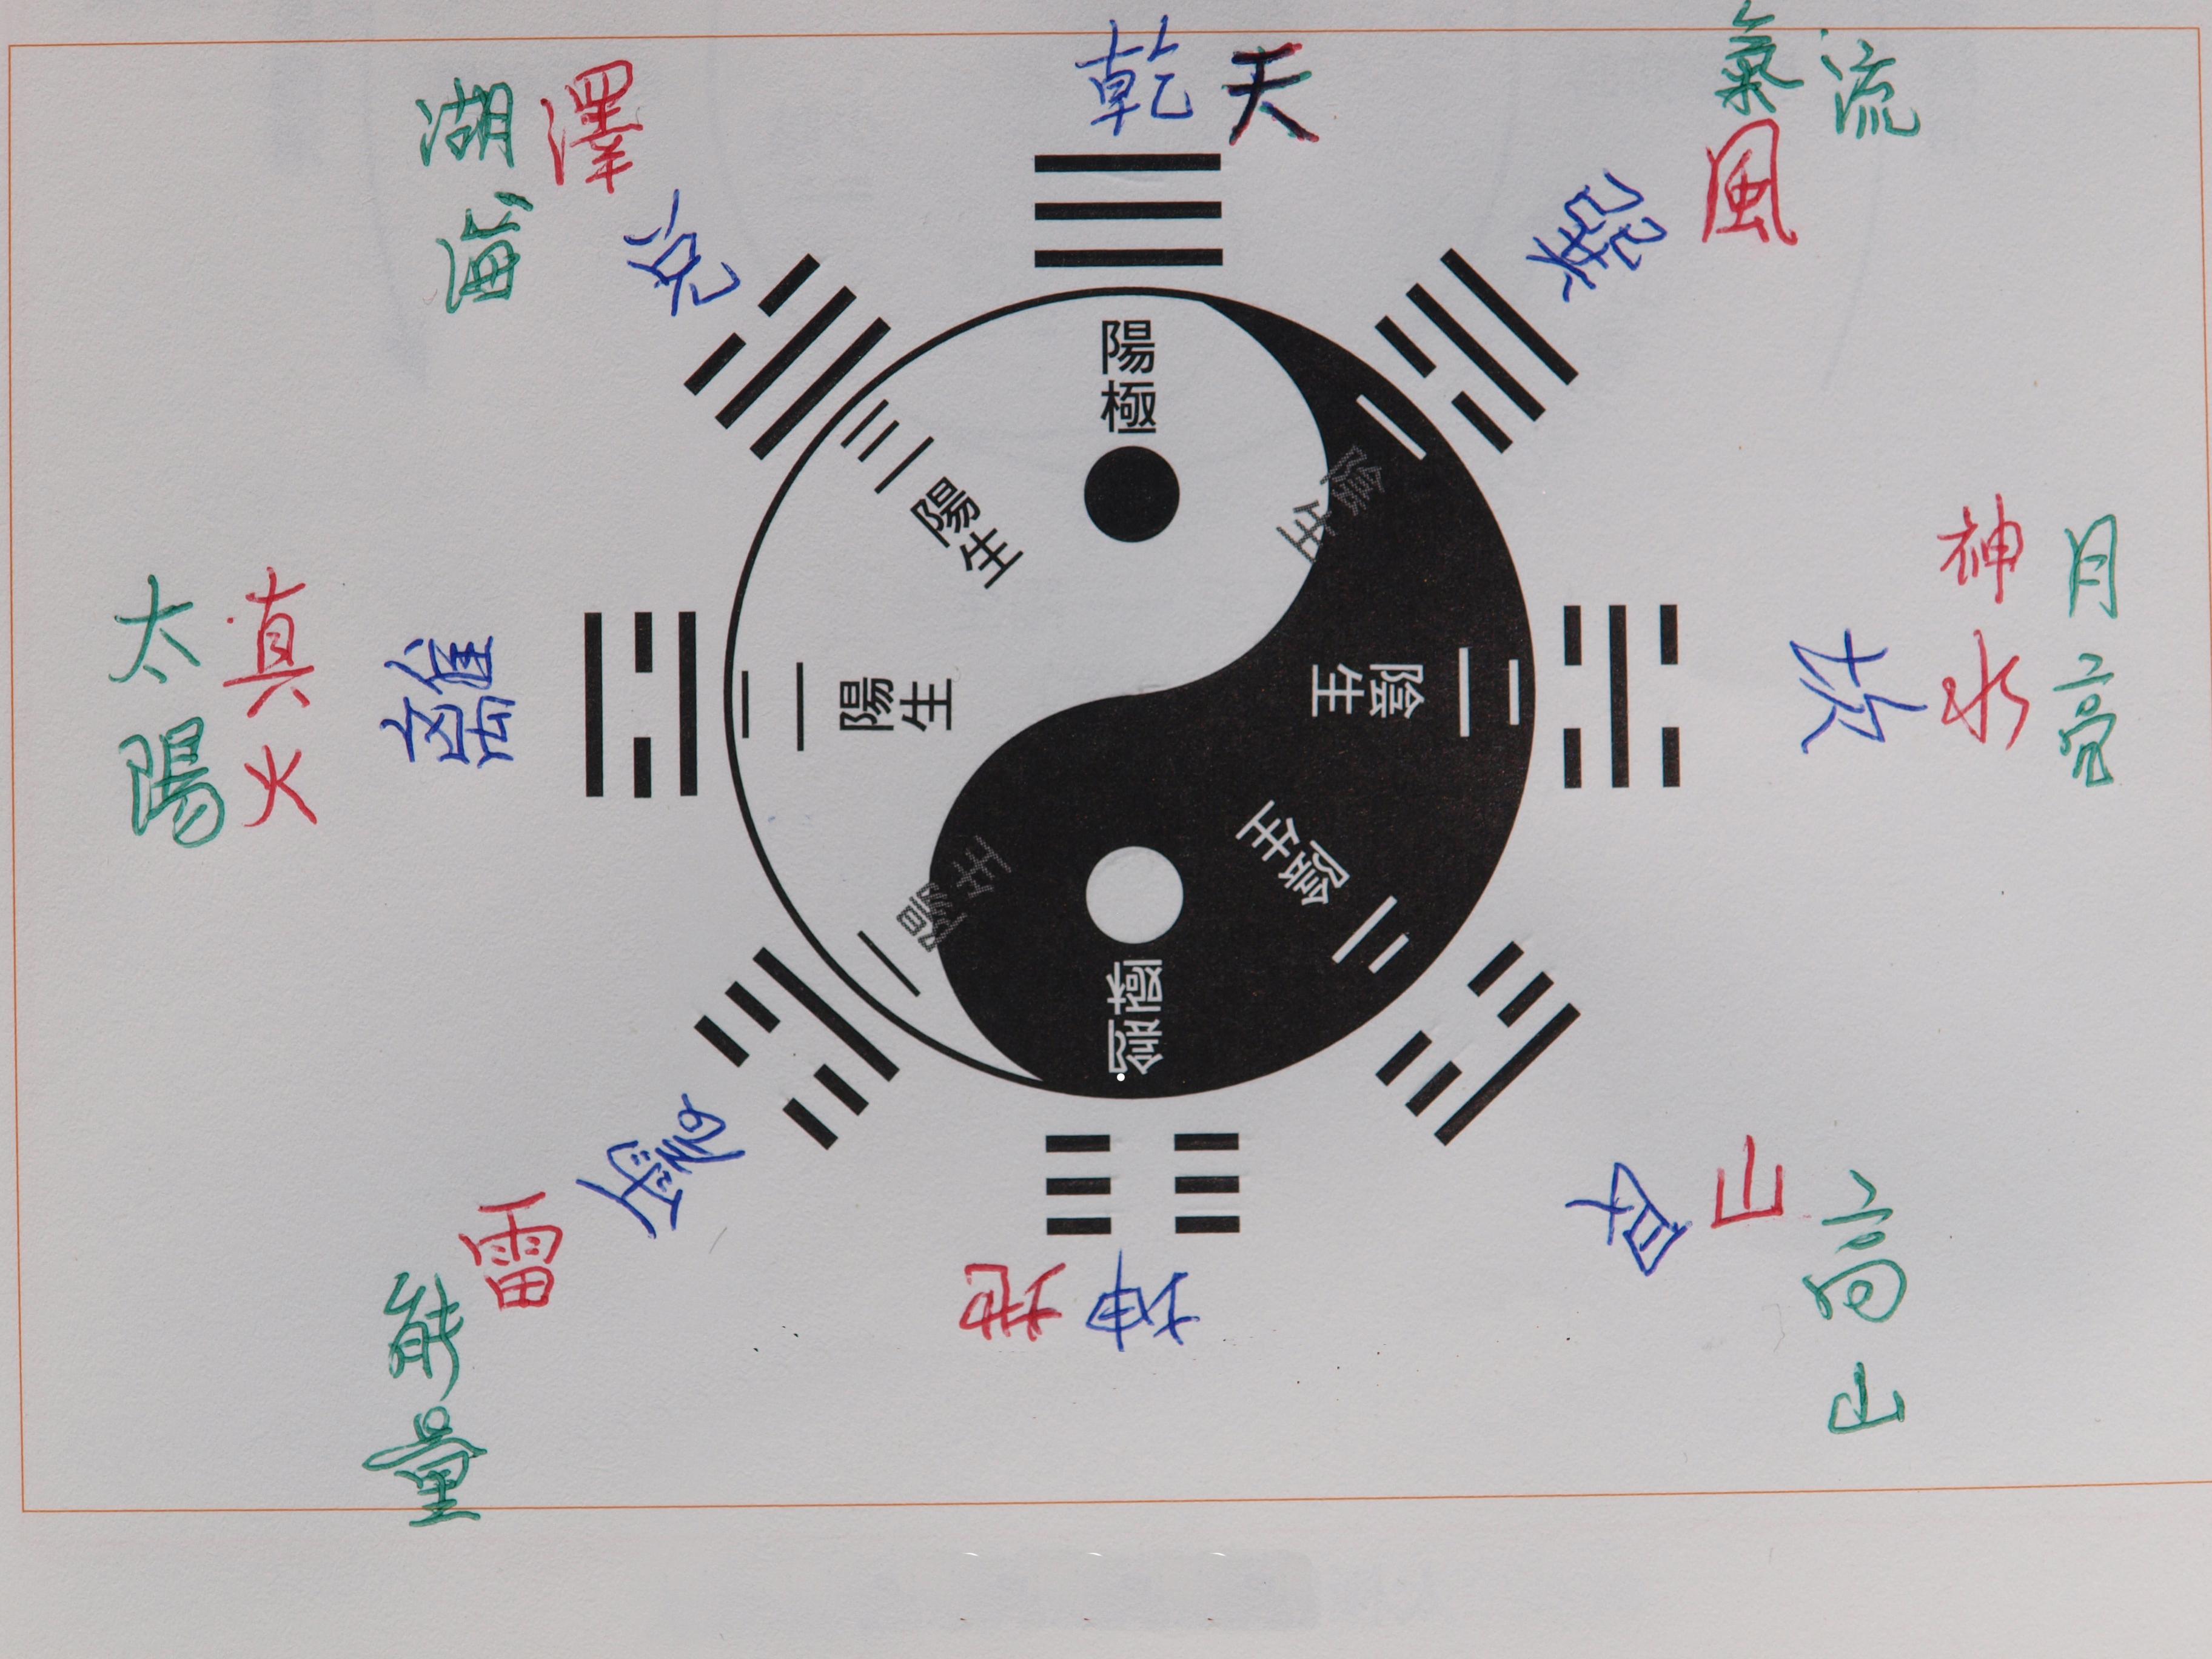 乾 天
氣流
風
巽
神水
月亮
坎
山
高山
艮
坤
地
震
雷
能量
離
真火
太陽
兌
澤
湖海
陽極
陰生
陰生
陰生
陰極
陽生
陽生
陽生